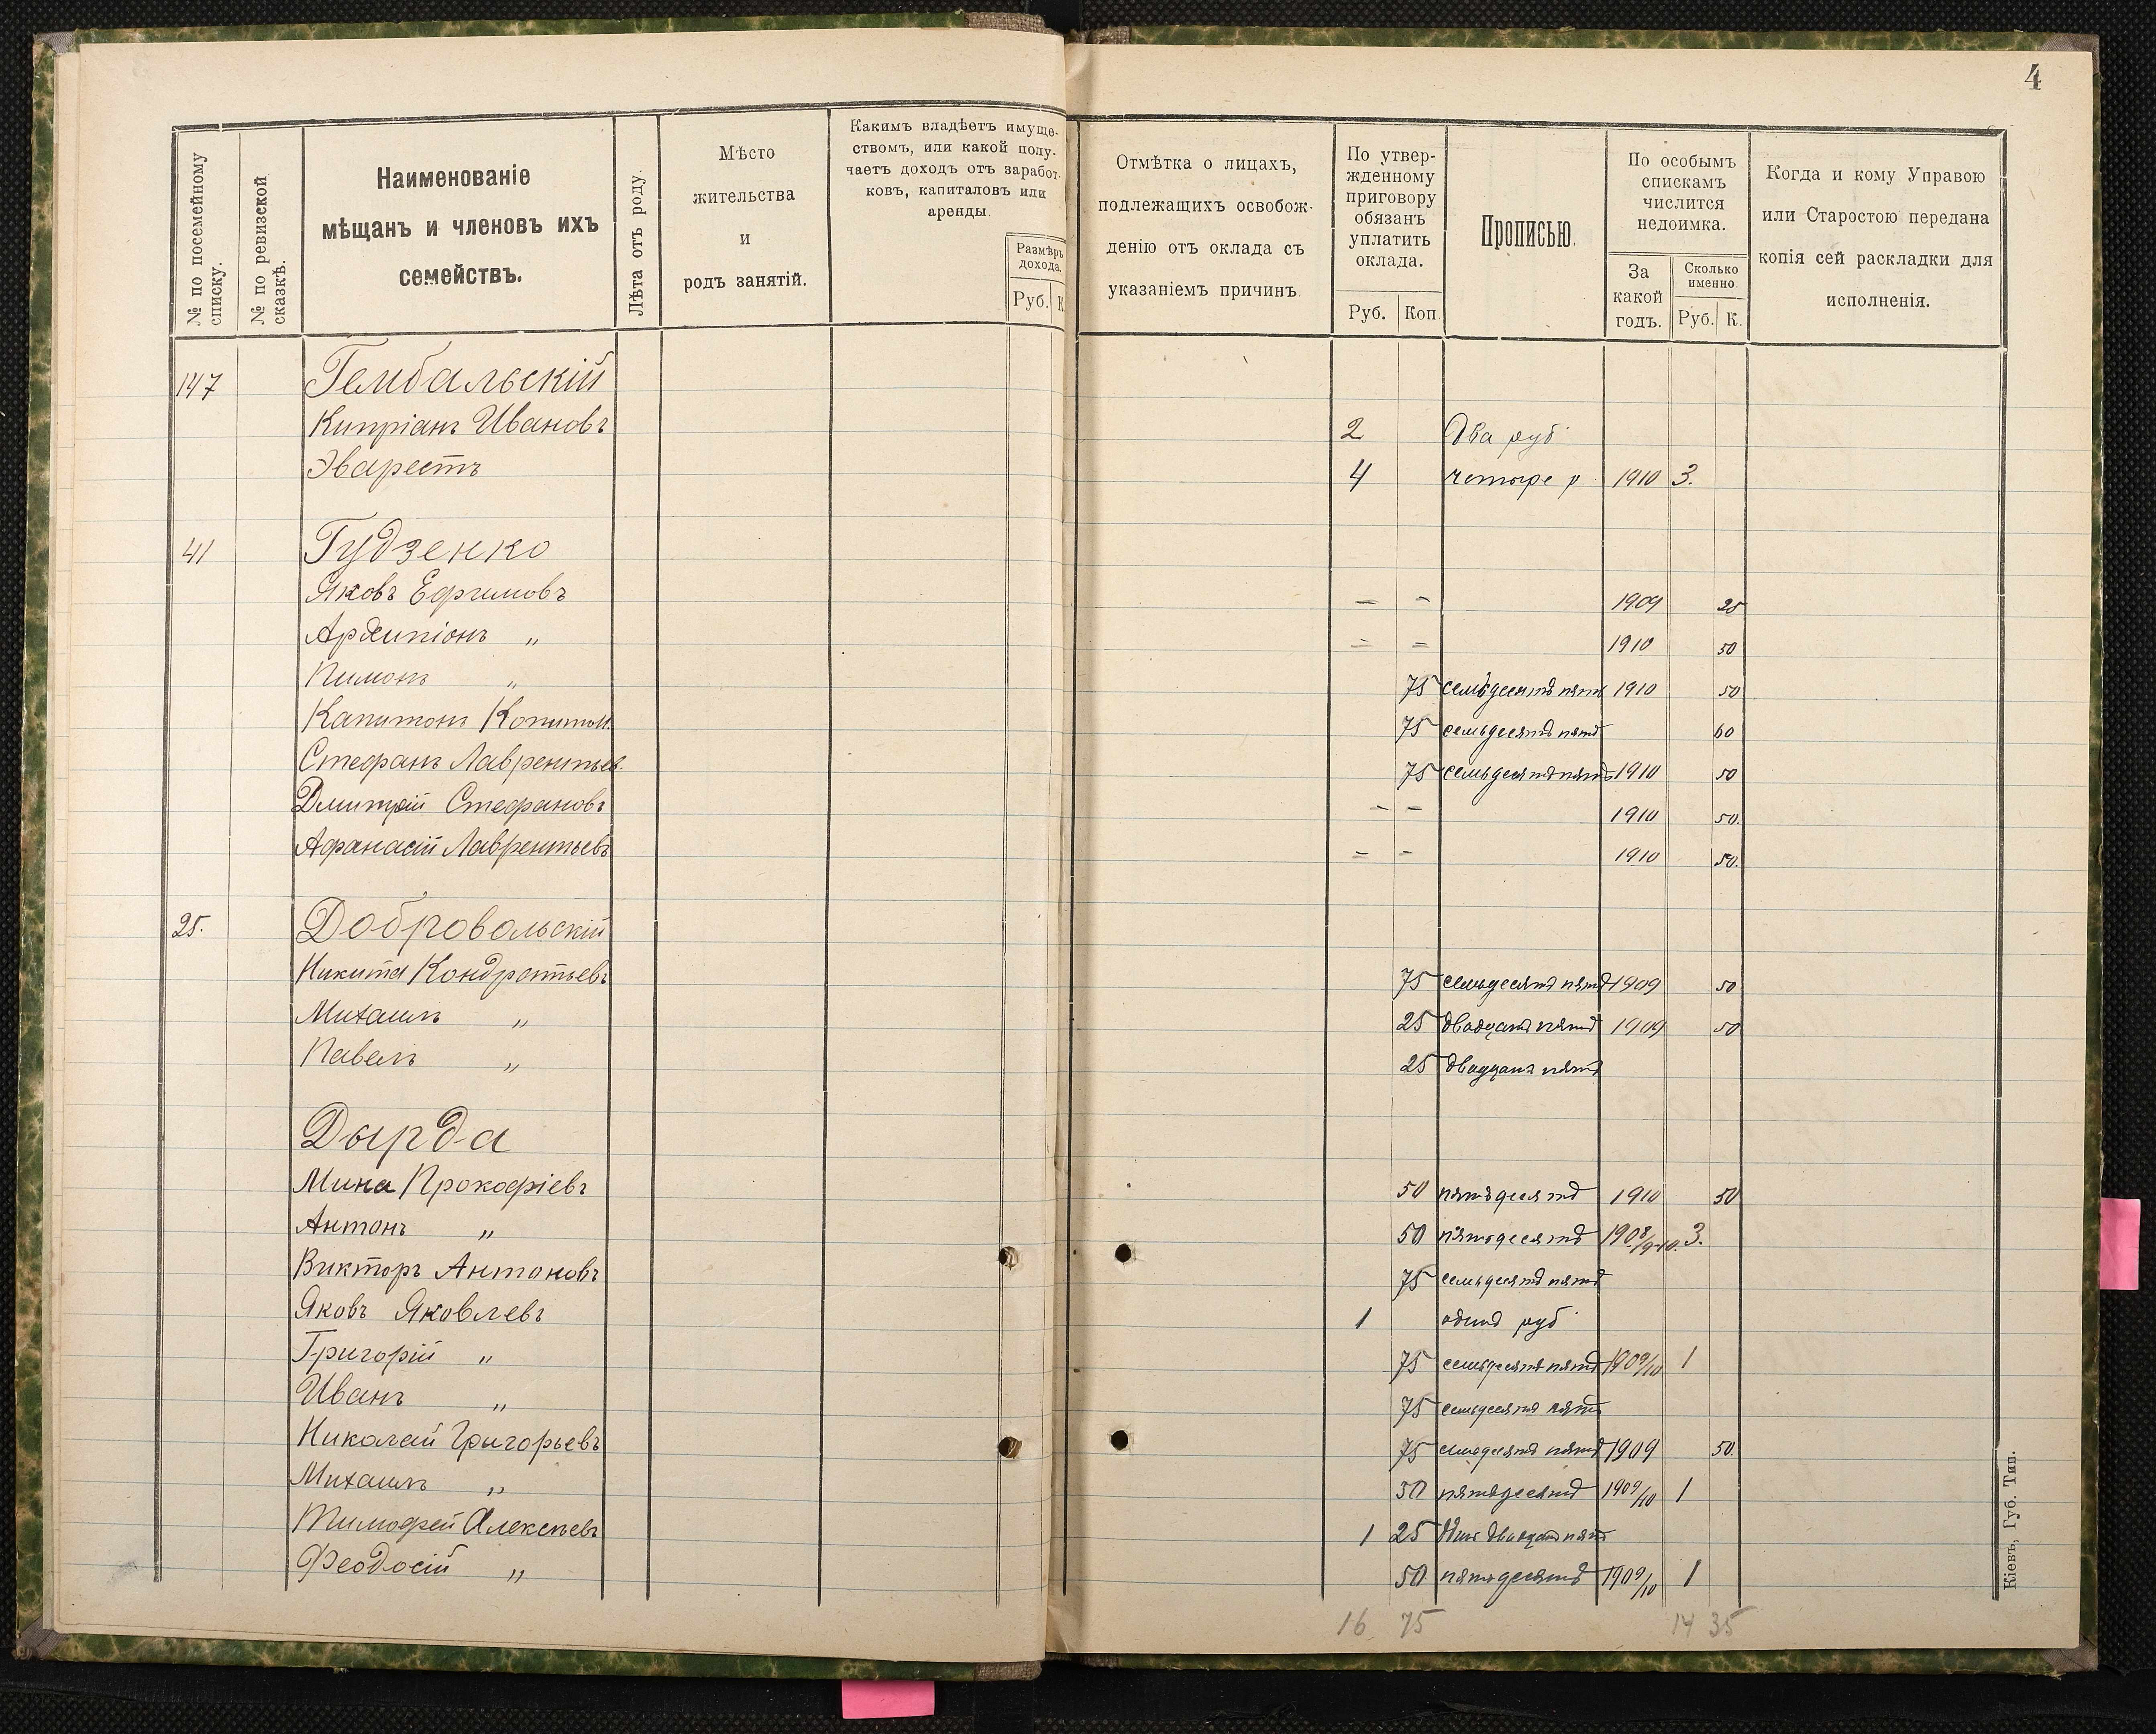 4
№ по посемейному списку.
№ по ревизской сказкѣ.
Наименованіе
мѣщанъ и членовъ ихъ
семействъ.
Лѣта отъ роду.
Мѣсто
жительства
и
родъ занятій.
Какимъ владѣетъ имуще-
ствомъ, или какой полу-
чаетъ доходъ отъ заработ-
ковъ, капиталовъ или
аренды.
Размѣръ
дохода.
Руб. К
Отмѣтка о лицахъ,
подлежащихъ освобож-
денію отъ оклада съ
указаніемъ причинъ
По утвер-
жденному
приговору
обязанъ
уплатить
оклада.
Руб. Коп.
Прописью.
По особымъ
спискамъ
числится
недоимка.
За
какой
годъ.
Сколько
именно.
Руб. К.
Когда и кому Управою
или Старостою передана
копія сей раскладки для
исполненія.
147 Гембальскій
Кипріанъ Ивановъ 2 Два руб
Эварестъ 4 четыре р 1910 3.
41 Гудзенко
Яковъ Ефимовъ — - 1909 25
Архипіонъ „ = = 1910 50
Пимонъ „ 75 семьдесятъ пять 1910 50
Капитонъ Копитон. 75 семьдесятъ пять 60
Стефанъ Лаврентьев. 75 семьдесятъ пять 1910 50
Дмитрій Стефановъ - - 1910 50.
Афанасій Лаврентьевъ = - 1910 50.
25. Добровольскій
Никита Кондратьевъ 75 семьдесятъ пять 1909 50
Михаилъ „ 25 двадцать пять 1909 50
Павелъ „ 25 двадцать пять
Дырда
Мина Прокофіевъ 50 пятьдесятъ 1910 50
Антонъ „ 50 пятьдесятъ 1908/9-10. 3.
Викторъ Антоновъ 75 семьдесятъ пять
Яковъ Яковлевъ 1 одинъ руб
Григорій „ 75 семьдесятъ пять 1909/10 1
Иванъ „ 75 семьдесятъ пять
Николай Григорьевъ 75 семьдесятъ пять 1909 50.
Михаилъ „ 50 пятьдесятъ 1909/10 1
Тимофей Алексѣевъ 1 25 один двадцать пят
Феодосій „ 50 пятьдесятъ 1909/10 1
16 75 14 35
Кіевъ, Губ. Тип.